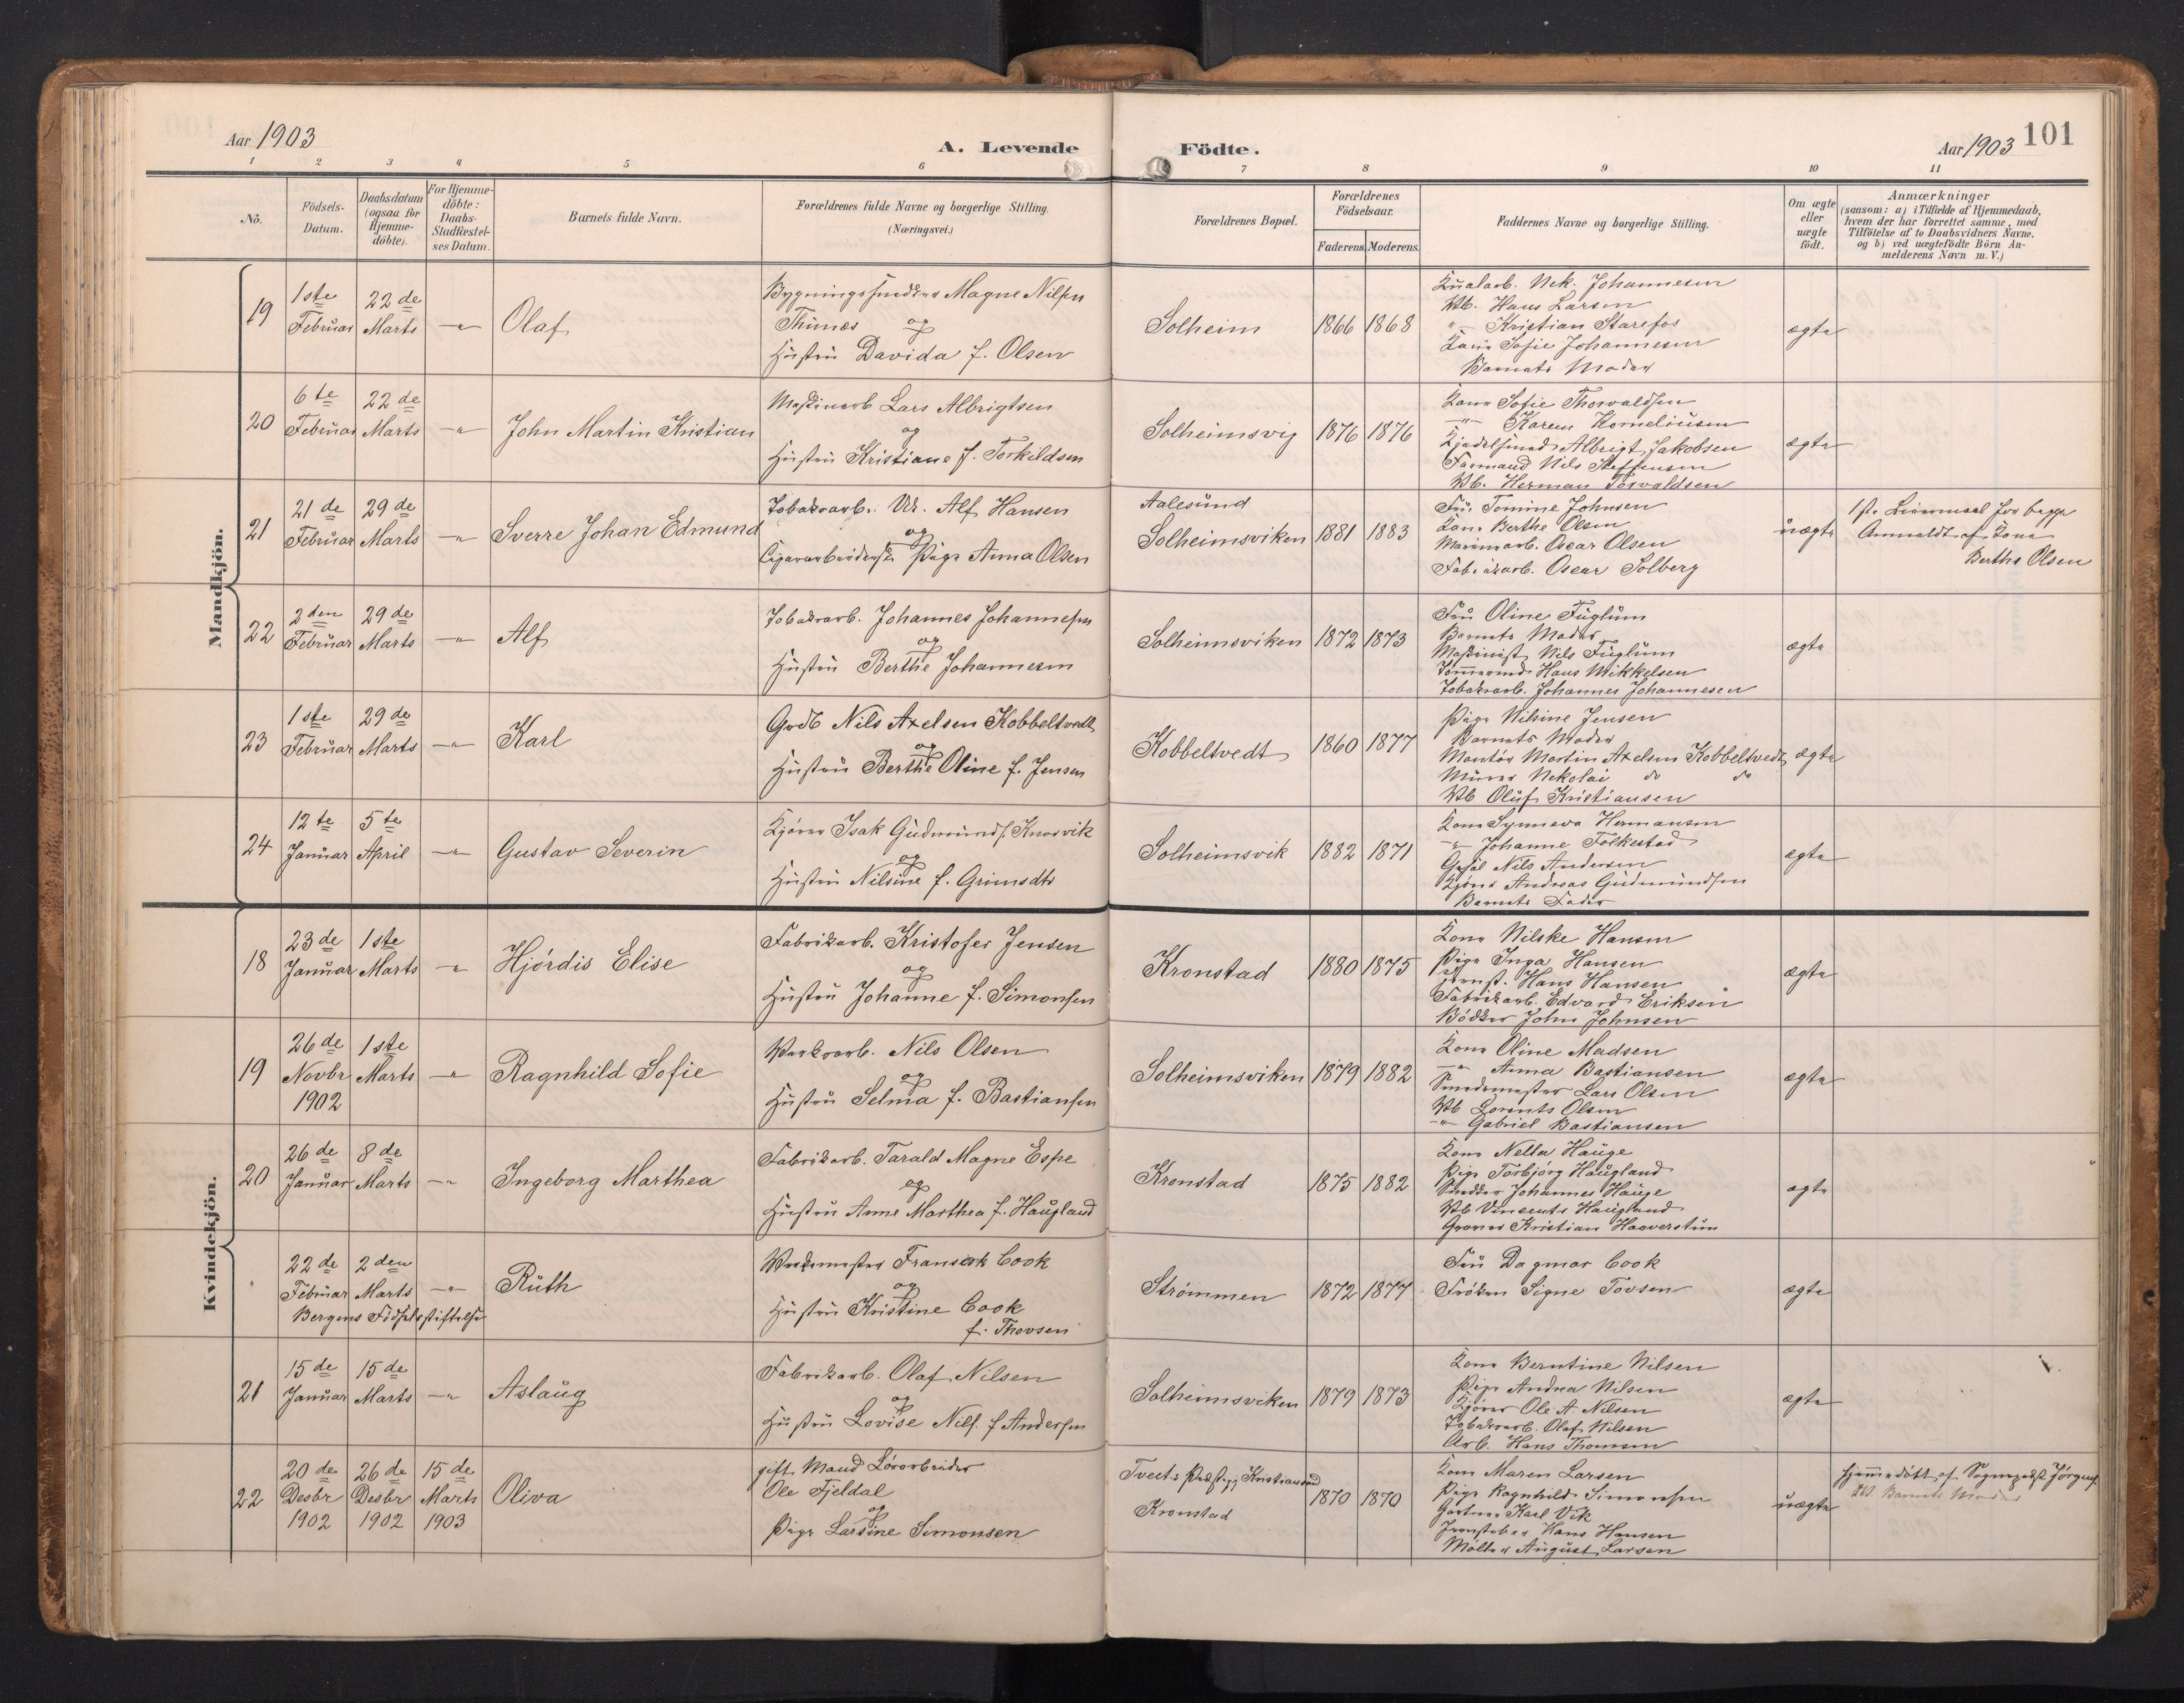 Aar 1903
A. Levende
Födte.
Aar 1903 101
1 2 3 4 5 6 7 8 9 10 11
No.
Födsels-
Datum.
Daabsdatum
(ogsaa for
Hjemme-
döbte).
For Hjemme-
döbte:
Daabs-
Stadfæstel-
ses Datum.
Barnets fulde Navn.
Forældrenes fulde Navne og borgerlige Stilling.
(Næringsvei.)
Forældrenes Bopæl.
Forældrenes
Födselsaar.
Faderens. Moderens.
Faddernes Navne og borgerlige Stilling.
Om ægte
eller
uægte
födt.
Anmærkninger
(saasom: a) i Tilfælde af Hjemmedaab,
hvem der har forrettet samme, med
Tilföielse af to Daabsvidners Navne.
og b) ved uægtefödte Börn An-
melderens Navn m. V.)
Mandkjön.
19
1ste
Februar
22de
Marts
—"—
Olaf
Bygningssnedker Magne Nilsen
Thunæs og
Hustru Davida f. Olsen
Solheim
1866 1868
Nek. Johannesen
Hans Larsen
"— Kristian Starefos
Kone Sofie Johannesen
Barnets Moder
ægte
20
6te
Februar
22de
Marts
—"—
John Martin Kristian
Maskinarb Lars Albrigtsen
og
Hustru Kristiane f. Torkildsen
Solheimsvig
1876 1876
Kone Sofie Thorvaldsen
—"— Karen Korneliusen
Kjedelsmed Albrigt Jakobsen
Formand Nils Steffensen
Herman Torvaldsen
ægte
21
21de
Februar
29de
Marts
—"—
Sverre Johan Edmund
Tobaksarb. Ur. Alf Hansen
og
Cigararbeiderske Pige Anna Olsen
Aalesund
Solheimsviken
1881 1883
Fru Tomine Johnsen
Kone Berthe Olsen
Oscar Olsen
Fabrikarb. Oscar Solberg
uægte
1ste Leiermaal for begge
Anmeldt af Kone
Berthe Olsen
22
2den
Februar
29de
Marts
—"—
Alf
Tobaksarb. Johannes Johannesen
og
Hustru Berthe Johannesen
Solheimsviken
1872 1873
Fru Oline Fuglum
Barnets Moder
Maskinist Nils Fuglum
Tømmermd. Hans Mikkelsen
Tobaksarb. Johannes Johannesen
ægte
23
1ste
Februar
29de
Marts
—"—
Karl
Grdb Nils Axelsen Kobbeltvedt
og
Hustru Berthe Oline f. Jensen
Kobbeltvedt
1860 1877
Pige Nikine Jensen
Barnets Moder
Montør Martin Axelsen Kobbeltvedt
Murer Nekolai do do
Oluf Kristiansen
ægte
24
12te
Januar
5te
April
—"—
Gustav Severin
Kjører Isak Gudmunds. Knarvik
og
Hustru Nilsine f. Grimsdtr
Solheimsvik
1882 1871
Kone Synneva Hermansen
—"— Johanne Folkestad
Nils Andersen
Kjører Andreas Gudmundsen
Barnets Fader
ægte
Kvindekjön.
18
23de
Januar
1ste
Marts
—"—
Hjørdis Elise
Fabrikarb. Kristofer Jensen
og
Hustru Johanne f. Simonsen
Kronstad
1880 1875
Kone Nilske Hansen
Pige Inga Hansen
Jernst. Hans Hansen
Fabrikarb. Edvard Eriksen
Bødker John Johnsen
ægte
19
26de
Novbr
1902
1ste
Marts
—"—
Ragnhild Sofie
Værksarb. Nils Olsen
og
Hustru Selma f. Bastiansen
Solheimsviken
1879 1882
Kone Oline Madsen
—"— Anna Bastiansen
Smedemester Lars Olsen
Lorents Olsen
—"— Gabriel Bastiansen
ægte
20
26de
Januar
8de
Marts
—"—
Ingeborg Marthea
Fabrikarb. Tarald Magne Espe
og
Hustru Anne Marthea f. Haugland
Kronstad
1875 1882
Kone Nella Hauge
Pige Torbjørg Haugland
Snedker Johannes Hauge
Vincents Haugland
Graver Kristian Haaverstun
ægte
"
22de
Februar
2den
Marts
—"—
Bergens Födselsstiftelse
Ruth
Værkmester Fransisk Cook
og
Hustru Kristine Cook
f. Thovsen
Strømmen
1872 1877
Fru Dagmar Cook
Frøken Signe Tovsen
ægte
21
15de
Januar
15de
Marts
—"—
Aslaug
Fabrikarb. Olaf Nilsen
og
Hustru Lovise Nils. f Andersen
Solheimsviken
1879 1873
Kone Berntine Nilsen
Pige Andrea Nilsen
Kjører Ole A. Nilsen
Tobaksarb. Olaf Nilsen
Arb. Hans Thomsen
ægte
22
20de
Desbr
1902
26de
Desbr
1902
15de
Marts
1903
Oliva
gift Mand Løsarbeider
Ole Fjeldal
og
Pige Larsine Simonsen
Tveits Præstegj Kristiansand
Kronstad
1870 1870
Kone Maren Larsen
Pige Ragnhild Simonsen
Gartner Karl Vik
Jernstøber Hans Hansen
Møller August Larsen
uægte
Hjemmedøbt af Sogneprest Jørgens.
Barnets Moder